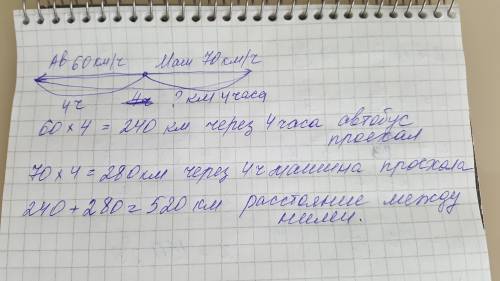 Ав 60 км/ч Маш 70 км/ч
4ч ? км 4 часа
60 × 4 = 240 км через 4 часа автобус
проехал
70 × 4 = 280 км через 4 ч машина проехала
240 + 280 = 520 км расстояние между
ними.